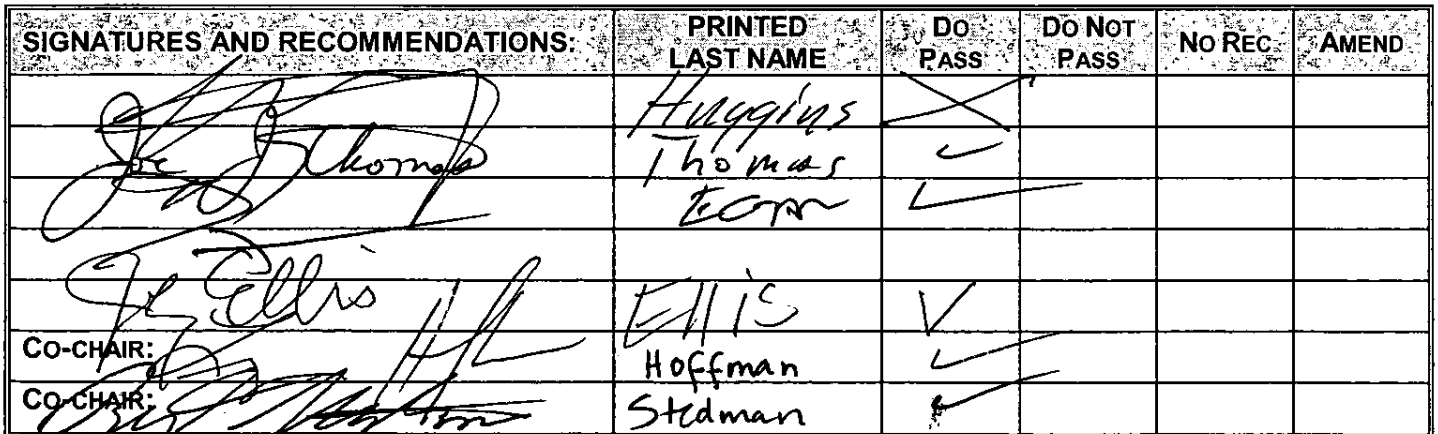 SIGNATURES AND RECOMMENDATIONS: PRINTED LAST NAME DO PASS DO NOT PASS NO REC AMEND
Huggins
Joe Thomas Thomas
Ellis Ellis
CO-CHAIR: Hoffman
CO-CHAIR: Stedman